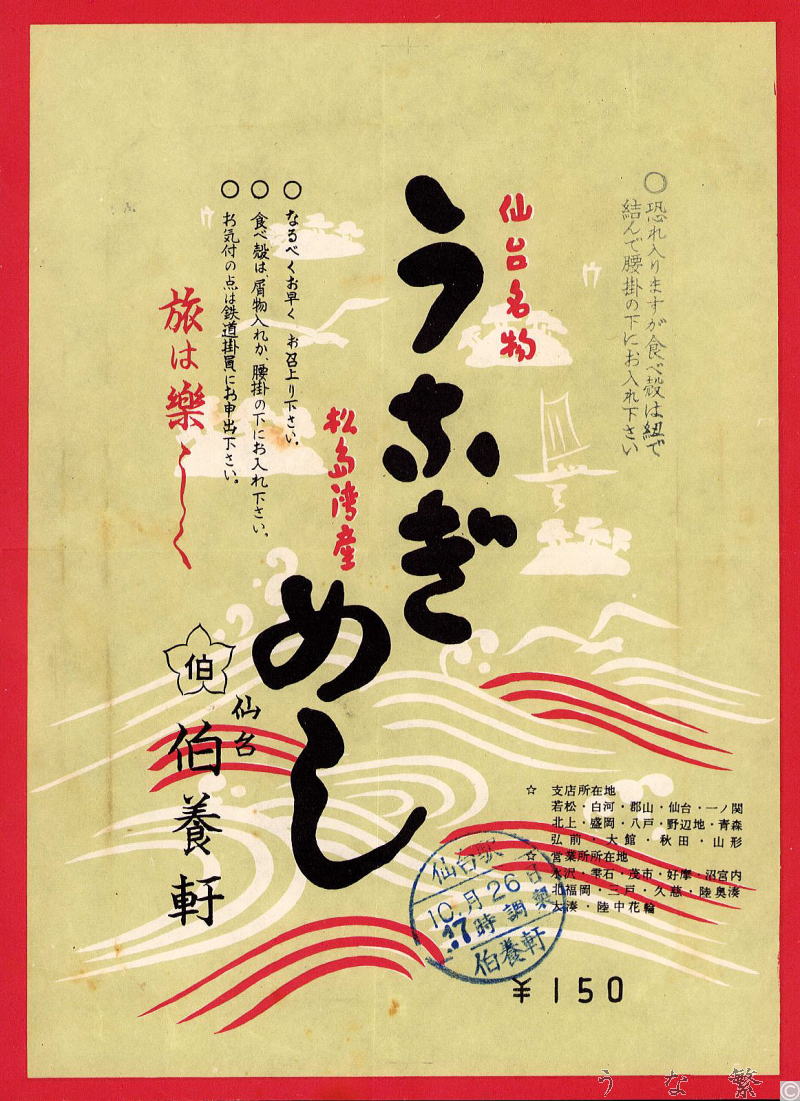 ○恐れ入りますが食べ殻は紐で
結んで腰掛の下にお入れ下さい
仙台名物
うなぎ
めし
松島湾産
○なるべくお早くお召上り下さい。
○食べ殻は、屑物入れか、腰掛の下にお入れ下さい。
○お気付の点は鉄道掛員にお申出下さい。
旅は樂しく
伯
仙台
伯養軒
☆ 支店所在地
若松・白河・郡山・仙台・一ノ関
北上・盛岡・八戸・野辺地・青森
弘前・大館・秋田・山形
☆ 営業所所在地
水沢・雫石・茂市・好摩・沼宮内
北福岡・三戸・久慈・陸奥湊
大湊・陸中花輪
仙台駅
10月26日
17時調製
伯養軒
¥150
うな繁
©